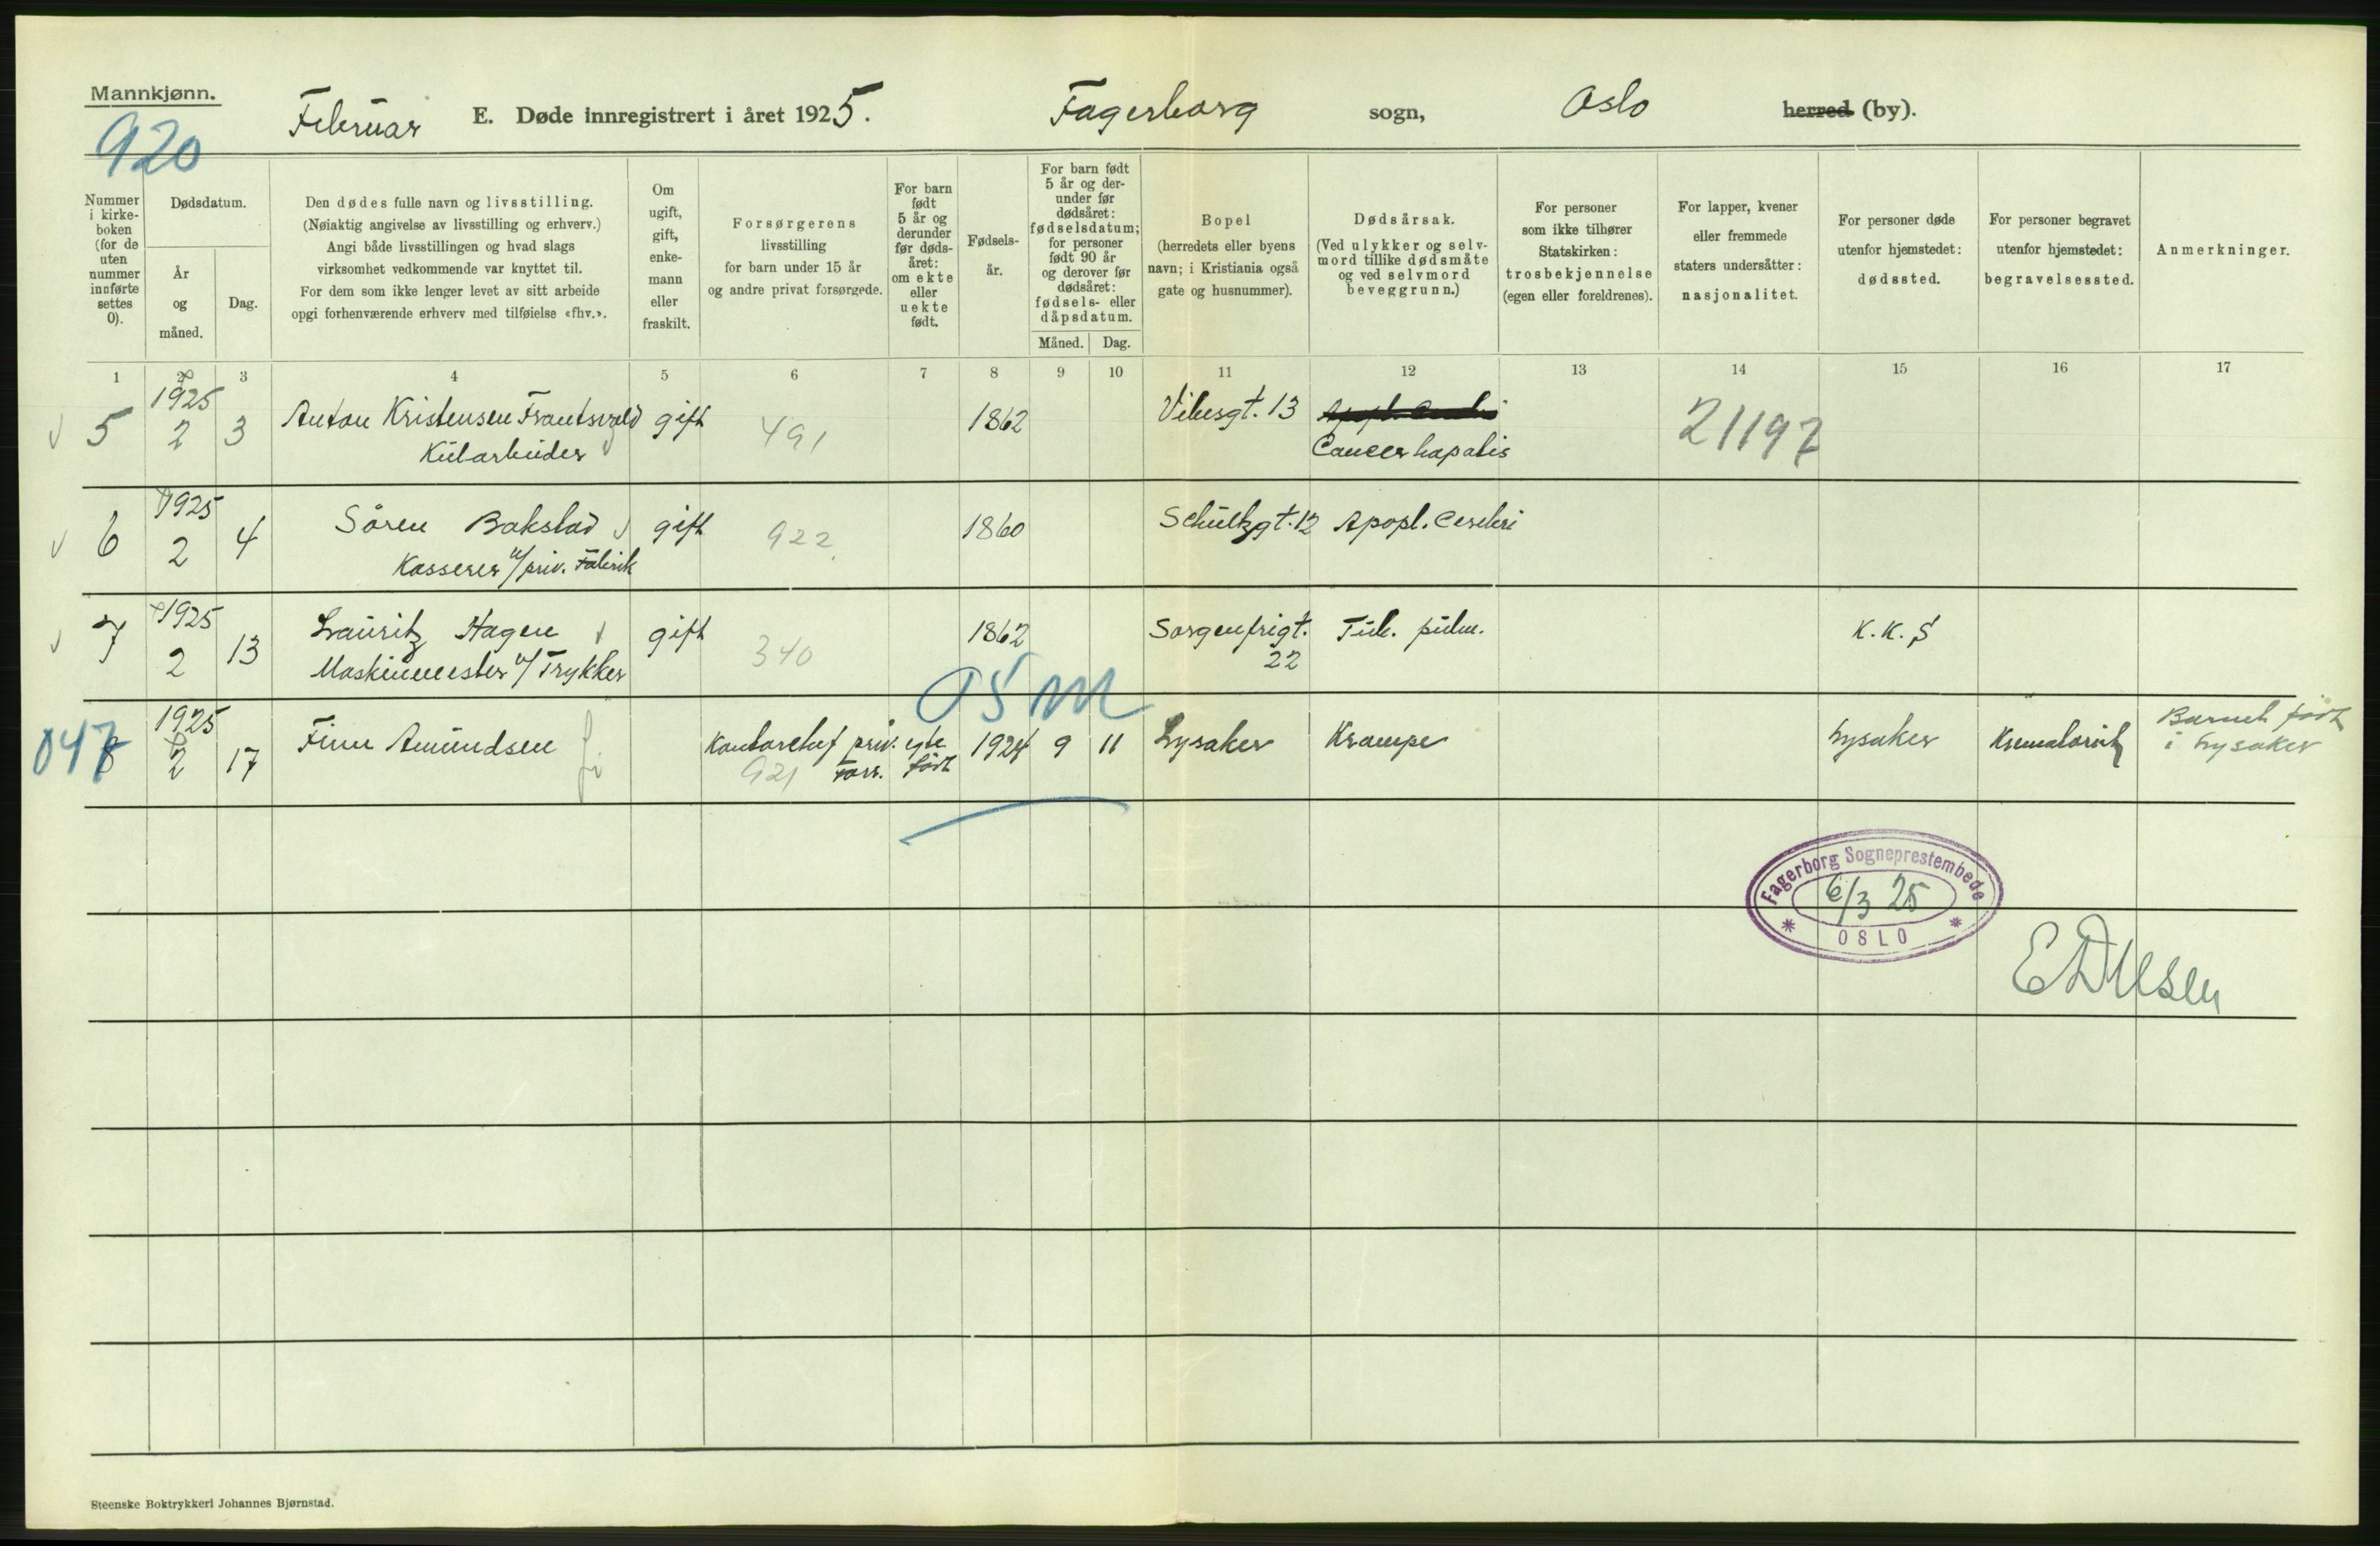 Mannkjønn.
920
Februar E. Døde innregistrert i året 1925. Fagerborg sogn, Oslo herred (by).
Nummer i kirke- boken (for de uten nummer innførte settes 0).
Dødsdatum.
År og måned.
Dag.
Den dødes fulle navn og livsstilling.
(Nøiaktig angivelse av livsstilling og erhverv.)
Angi både livsstillingen og hvad slags
virksomhet vedkommende var knyttet til.
For dem som ikke lenger levet av sitt arbeide
opgi forhenværende erhverv med tilføielse «fhv.».
Om ugift, gift, enke- mann eller fraskilt.
Forsørgerens
livsstilling
for barn under 15 år
og andre privat forsørgede.
For barn født 5 år og derunder før døds- året: om ekte eller uekte født.
Fødsels- år.
For barn født 5 år og der- under før dødsåret: fødselsdatum; for personer født 90 år og derover før dødsåret: fødsels- eller dåpsdatum.
Måned.
Dag.
Bopel
(herredets eller byens
navn; i Kristiania også
gate og husnummer).
Dødsårsak.
(Ved ulykker og selv-
mord tillike dødsmåte
og ved selvmord
beveggrunn.)
For personer
som ikke tilhører
Statskirken:
trosbekjennelse
(egen eller foreldrenes).
For lapper, kvener
eller fremmede
staters undersåtter:
nasjonalitet.
For personer døde
utenfor hjemstedet:
dødssted.
For personer begravet
utenfor hjemstedet:
begravelsessted.
Anmerkninger.
1 2 3 4 5 6 7 8 9 10 11 12 13 14 15 16 17
5 1925 2 3 Anton Kristensen gift 491 1862 Vibesgt. 13 21197
Cancer hepatis
6 1925 2 4 Sören Bakstad gift 922 1860 Schultzgt. 12 Apopl. Cerebri
Kasserer v/priv. Fabrik
7 1925 2 13 Lauritz Hagen gift 340 1862 Sorgenfrigt. 22 Tub. pulm. K.K.S
Maskinmester v/ Trykker
05 M
047
8 1925 2 17 Finn Amundsen Kontorchef priv. 921 Forr. egte født 1924 9 11 Lysaker Krampe Lysaker Barnet født
i Lysaker
Fagerborg Sogneprestembede
6/3 25
* OSLO *
Steenske Boktrykkeri Johannes Bjørnstad.